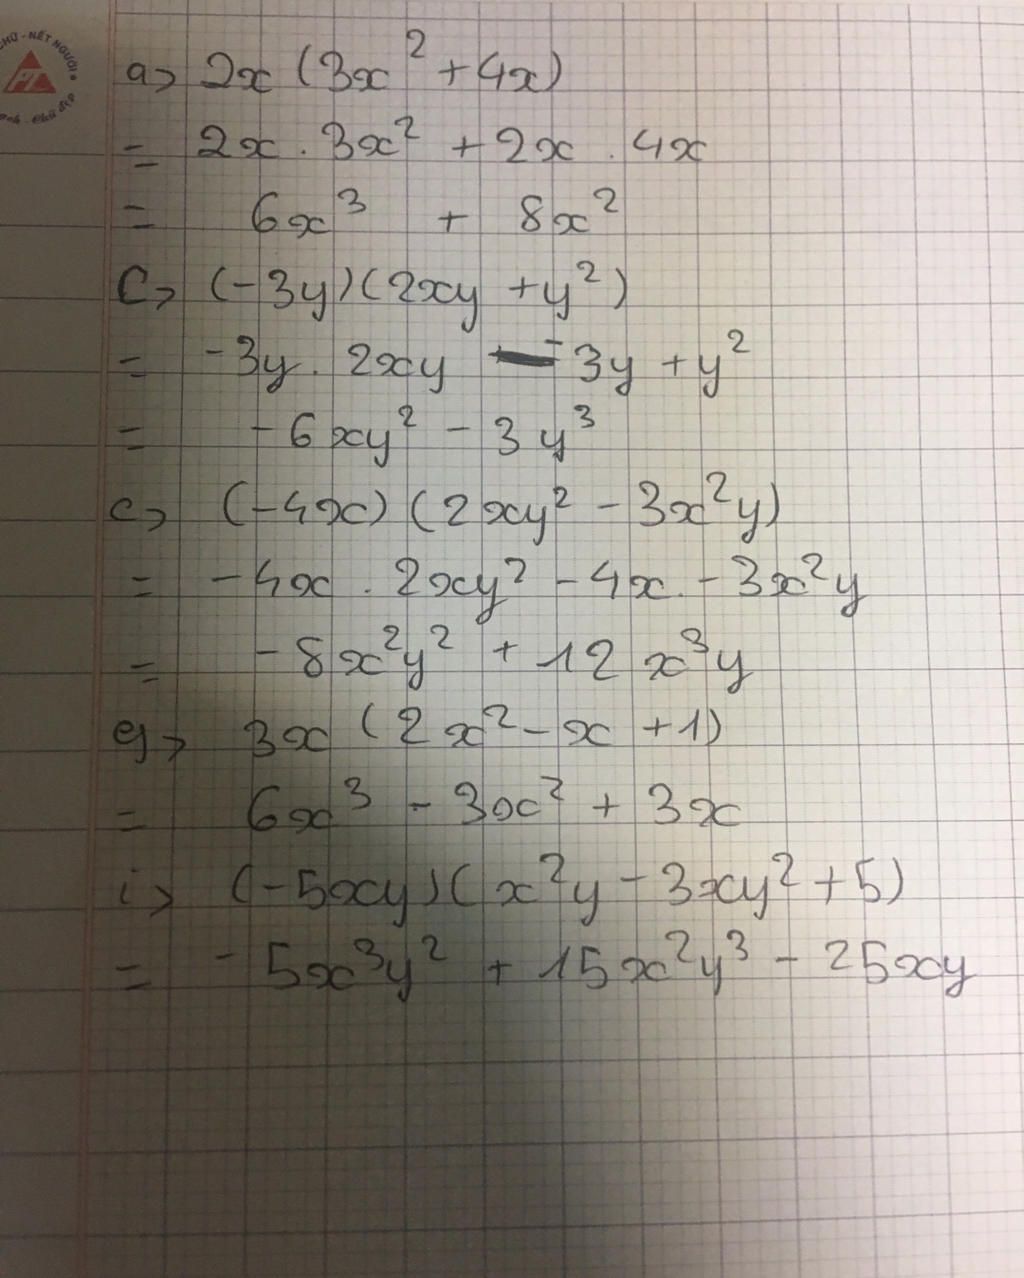 CHỮ - NẾT NGƯỜI
PT
Chữ đẹp
a> 2x (3x² + 4x)
= 2x . 3x² + 2x . 4x
= 6x³ + 8x²
C> (-3y)(2xy + y²)
= -3y . 2xy - 3y + y²
= -6xy² - 3y³
e> (-4x) (2xy² - 3x²y)
= -4x . 2xy² - 4x . - 3x²y
= -8x²y² + 12x³y
g> 3x (2x² - x + 1)
= 6x³ - 3x² + 3x
i> (-5xy)(x²y - 3xy² + 5)
= -5x³y² + 15x²y³ - 25xy